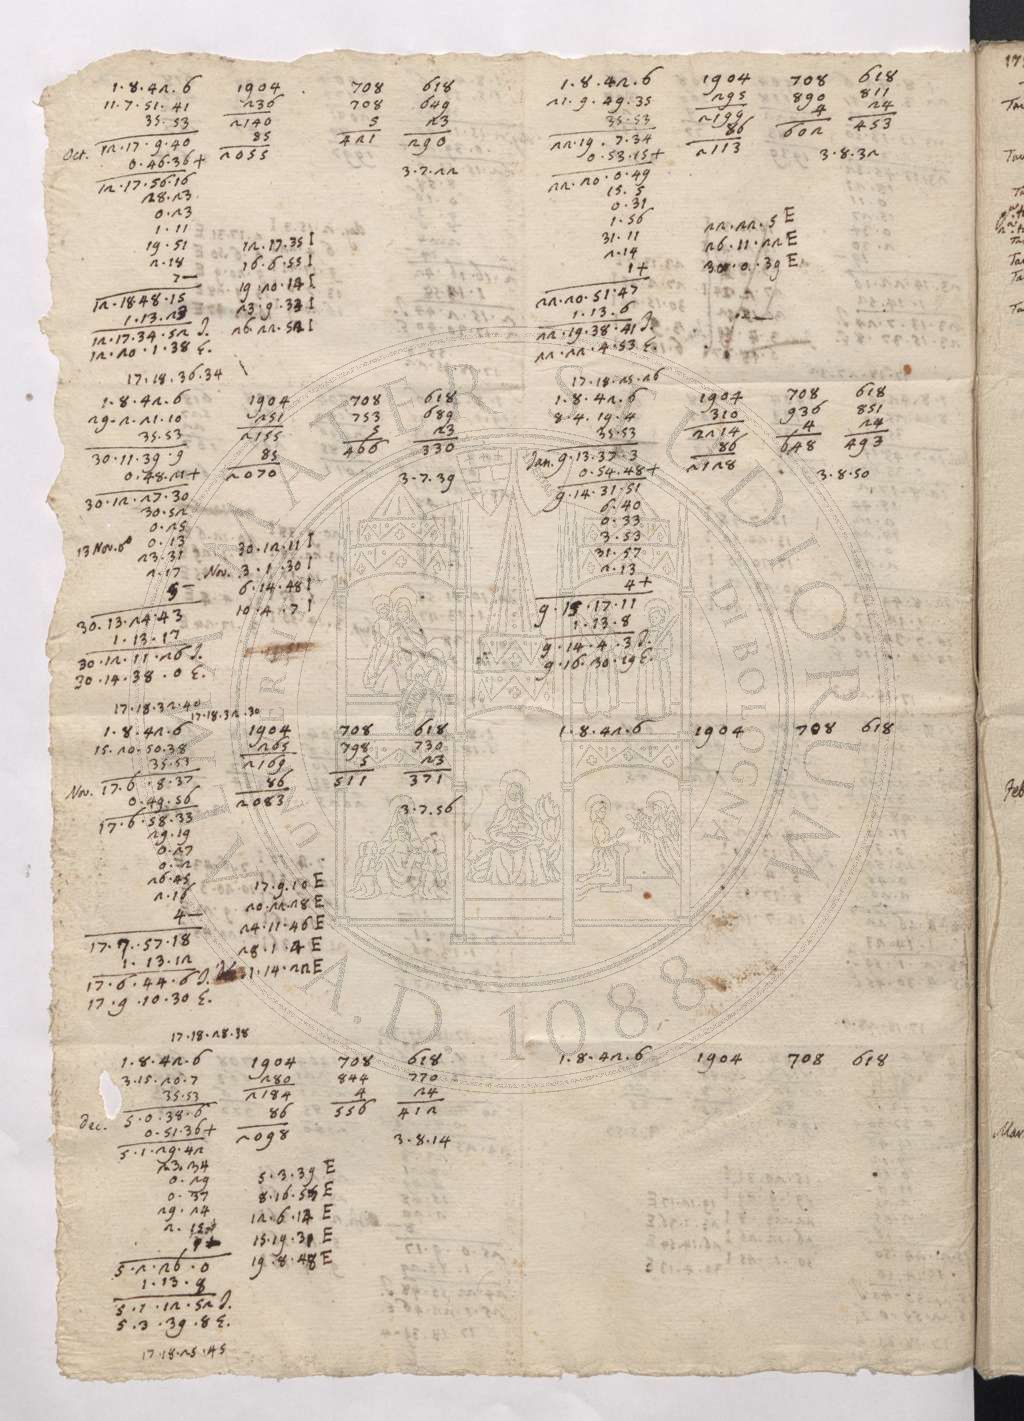 1.8.42.6 1904 708 618
11.7.51.41 236 708 649
35.53 2140 5 23
Oct. 12.17.9.40 85 421 290
0.46.36+ 2055
12.17.56.16 3.7.22
28.23
0.23
1.11
19.51 12.17.35 I
2.18 16.6.55 I
7— 19.20.14 I
12.18.48.15 23.9.33 I
1.13.23 26.22.52 I
12.17.34.52 J.
12.20.1.38 E.
17.18.36.34
1.8.42.6 1904 708 618
29.2.21.10 251 753 689
35.53 2155 5 23
30.11.39.9 85 466 330
0.48.21+ 2070 3.7.39
30.12.27.30
30.52
0.25
13 Nov. 0.13 30.12.11 I
23.31 Nov. 3.1.30 I
2.17 6.14.48 I
5— 10.4.7 I
30.13.24.43
1.13.17
30.12.11.26 J.
30.14.38.0 E.
17.18.32.40
17.18.32.30
1.8.42.6 1904 708 618
15.20.50.38 265 798 730
35.53 2169 5 23
Nov. 17.6.8.37 86 511 371
0.49.56 2083 3.7.56
17.6.58.33
29.19
0.27
0.2
26.45
2.16 17.9.10 E
4— 20.22.28 E
17.7.57.18 24.11.46 E
1.13.12 28.1.4 E
17.6.44.6 J. 1.14.22 E
17.9.10.30 E.
17.18.28.38
1.8.42.6 1904 708 618
3.15.20.7 280 844 770
35.53 2184 4 24
Dec. 5.0.38.6 86 556 412
0.51.36+ 2098 3.8.14
5.1.29.42
23.34
0.29 5.3.39 E
0.37 8.16.55 E
29.24 12.6.12 E
15.19.31 E
5.2.26.0 19.8.48 E
1.13.8
5.1.12.52 J.
5.3.39.8 E.
17.18.25.45
1.8.42.6 1904 708 618
21.9.49.35 295 890 811
35.53 2199 4 24
22.19.7.34 86 602 453
0.53.15+ 2113 3.8.32
22.20.0.49
15.5
0.31
1.56 22.22.5 E
31.11 26.11.22 E
2.14 30.0.39 E
1+
22.20.51.47
1.13.6
22.19.38.41 J.
22.22.4.53 E.
17.18.25.26
1.8.42.6 1904 708 618
8.4.19.4 310 936 851
35.53 2214 4 24
Jan. 9.13.37.3 86 648 493
0.54.48+ 2128 3.8.50
9.14.31.51
6.40
0.33
3.53
31.57
2.13
4+
9.15.17.11
1.13.8
9.14.4.3 J.
9.16.30.19 E.
1.8.42.6 1904 708 618
1.8.42.6 1904 708 618
17
Feb
Mar.
ALMA MATER STUDIORUM
UNIVERSITÀ DI BOLOGNA
A.D. 1088